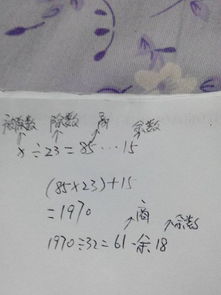 被除数 除数 商 余数
x÷23=85…15
(85×23)+15
=1970
商 余数
1970÷32=61…余18